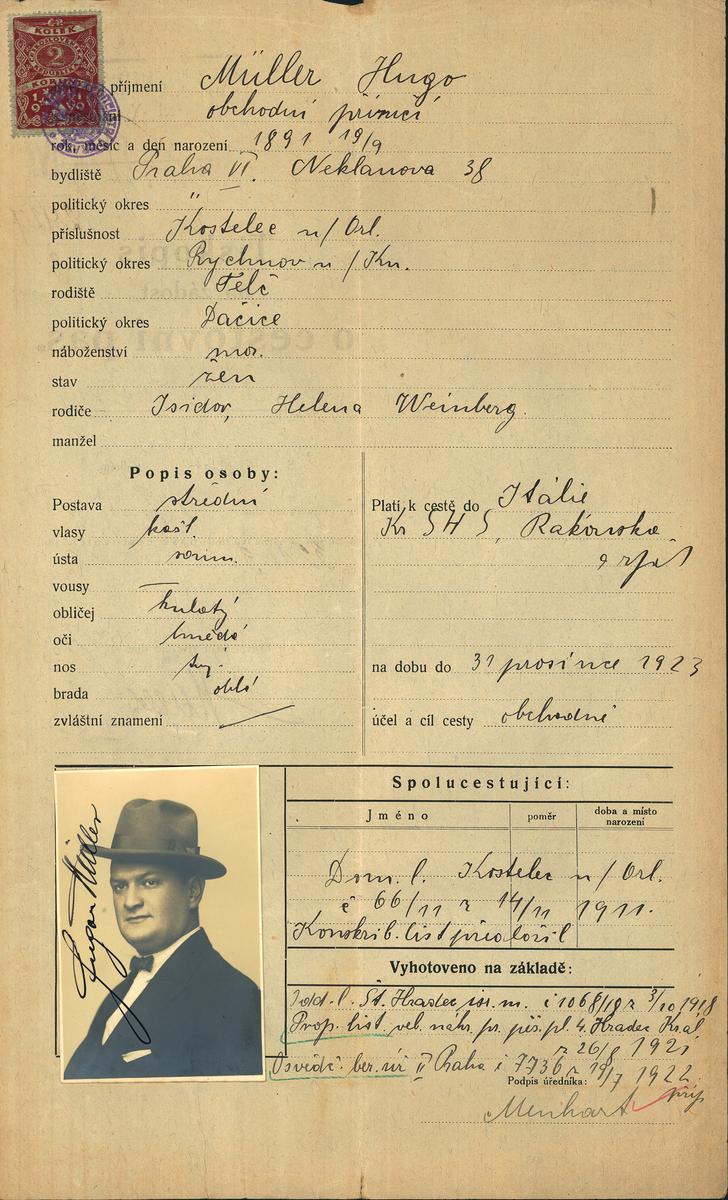 KOLEK
2
příjmení Müller Hugo
obchodní příručí
rok, měsíc a den narození 1891 19/9
bydliště Praha VI. Neklanova 38
politický okres "
příslušnost Kostelec n/Orl.
politický okres Rychnov n/Kn.
rodiště Telč
politický okres Dačice
náboženství moj.
stav žen
rodiče Isidor, Helena Weinberg.
manžel
Popis osoby:
Postava střední
vlasy kašt.
ústa
vousy —
obličej kulatý
oči hnědé
nos
brada oblá
zvláštní znamení —
Platí k cestě do Itálie
Kr SHS, Rakouska
a zpět
na dobu do 31 prosince 1923
účel a cíl cesty obchodní
Spolucestující:
Jméno poměr doba a místo narození
Dom. l. Kostelec n/Orl.
č 66/11 z 14/11 1911.
Konskrib. list předložil
Hugo Müller
Vyhotoveno na základě:
Odd. l. St. Hradec isr. m. č 1068/18 z 3/10 1918
Prop. list. vel. náhr. pr. pěš. pl. 4. Hradec Král
z 26/8 1921
Osvědč. ber. úř II Praha č 7736 z 19/7 1922
Podpis úředníka:
Menhart